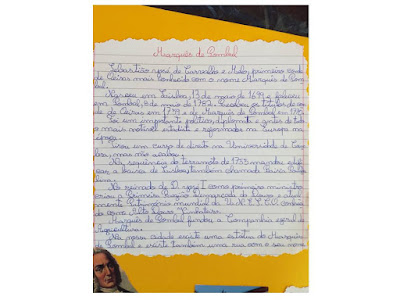 Marquês de Pombal
Sebastião José de Carvalho e Melo, primeiro conde
de Oeiras mais conhecido com o nome Marquês de Pom-
bal.
Nasceu em Lisboa, 13 de maio de 1699 e faleceu
em Pombal, 8 de maio de 1782. Recebeu os títulos de con-
de de Oeiras em 1759 e de Marquês de Pombal em
Foi um importante político, diplomata e
o mais notável estadista e reformador na Europa na
época.
Tirou um curso de direito na Universidade de Coim-
bra, mas não acabou!
Na sequência do terramoto de 1755 mandou edifi-
car a baixa de Lisboa também chamada Baixa Pomba-
lina.
No reinado de D. José I como primeiro ministro
criou a Primeira Região demarcada do Douro e atual-
mente Património mundial da U.N.E.S.C.O. conheci-
da como Alto Douro Vinhateiro.
Marquês de Pombal fundou a Companhia geral da
Agricultura.
Na nossa cidade existe uma estátua do Marquês
de Pombal e existe também uma rua com o seu nome